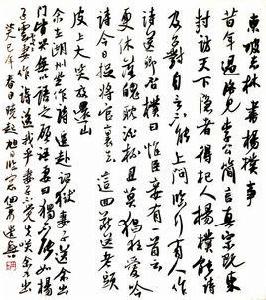 東坡志林書楊樸事
昔年過洛見李公簡言真宗既東
封訪天下隱者得杞人楊樸能詩
及召對自言不能上問臨行有人作
詩送卿否樸曰惟臣妾有一首云
更休落魄耽杯酒且莫猖狂愛吟
詩今日捉將官裏去這回斷送老頭
皮上大笑放還山
余在湖州坐作詩追赴詔獄妻子送余出
門皆哭無以語之顧語妻曰獨不能如楊
子雲妻作詩送我乎妻子不覺失笑余出
癸巳年春日